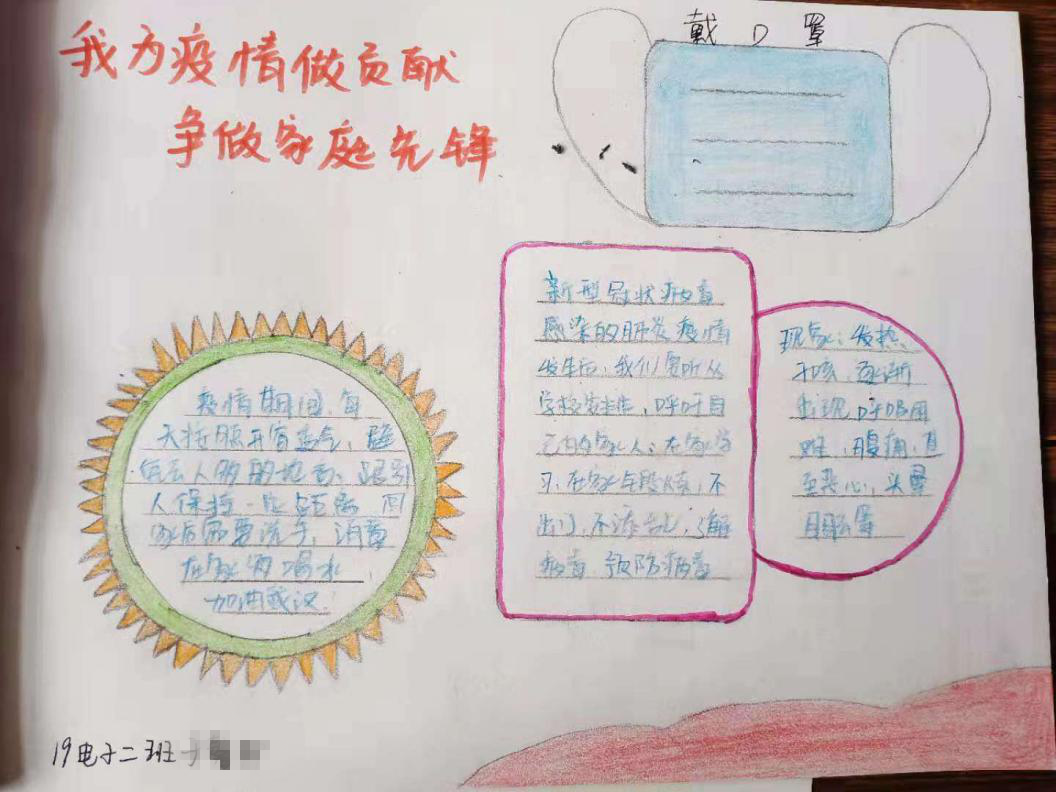 我为疫情做贡献
争做家庭先锋
戴口罩
疫情期间，每
天按照开窗通气，降
低去人多的地方，跟别
人保持一定距离，回
家后需要洗手，消毒
在家西喝水
加油武汉！
新型冠状病毒
感染的肺炎疫情
发生后，我们要听从
学校安排，呼吁自
己内的家人：在家学
习，在家锻炼，不
出门，不添乱，了解
病毒，预防病毒
现象：发热、
干咳、逐渐
出现呼吸困
难，腹痛，直
至恶心，头晕
目眩晕
19电子二班